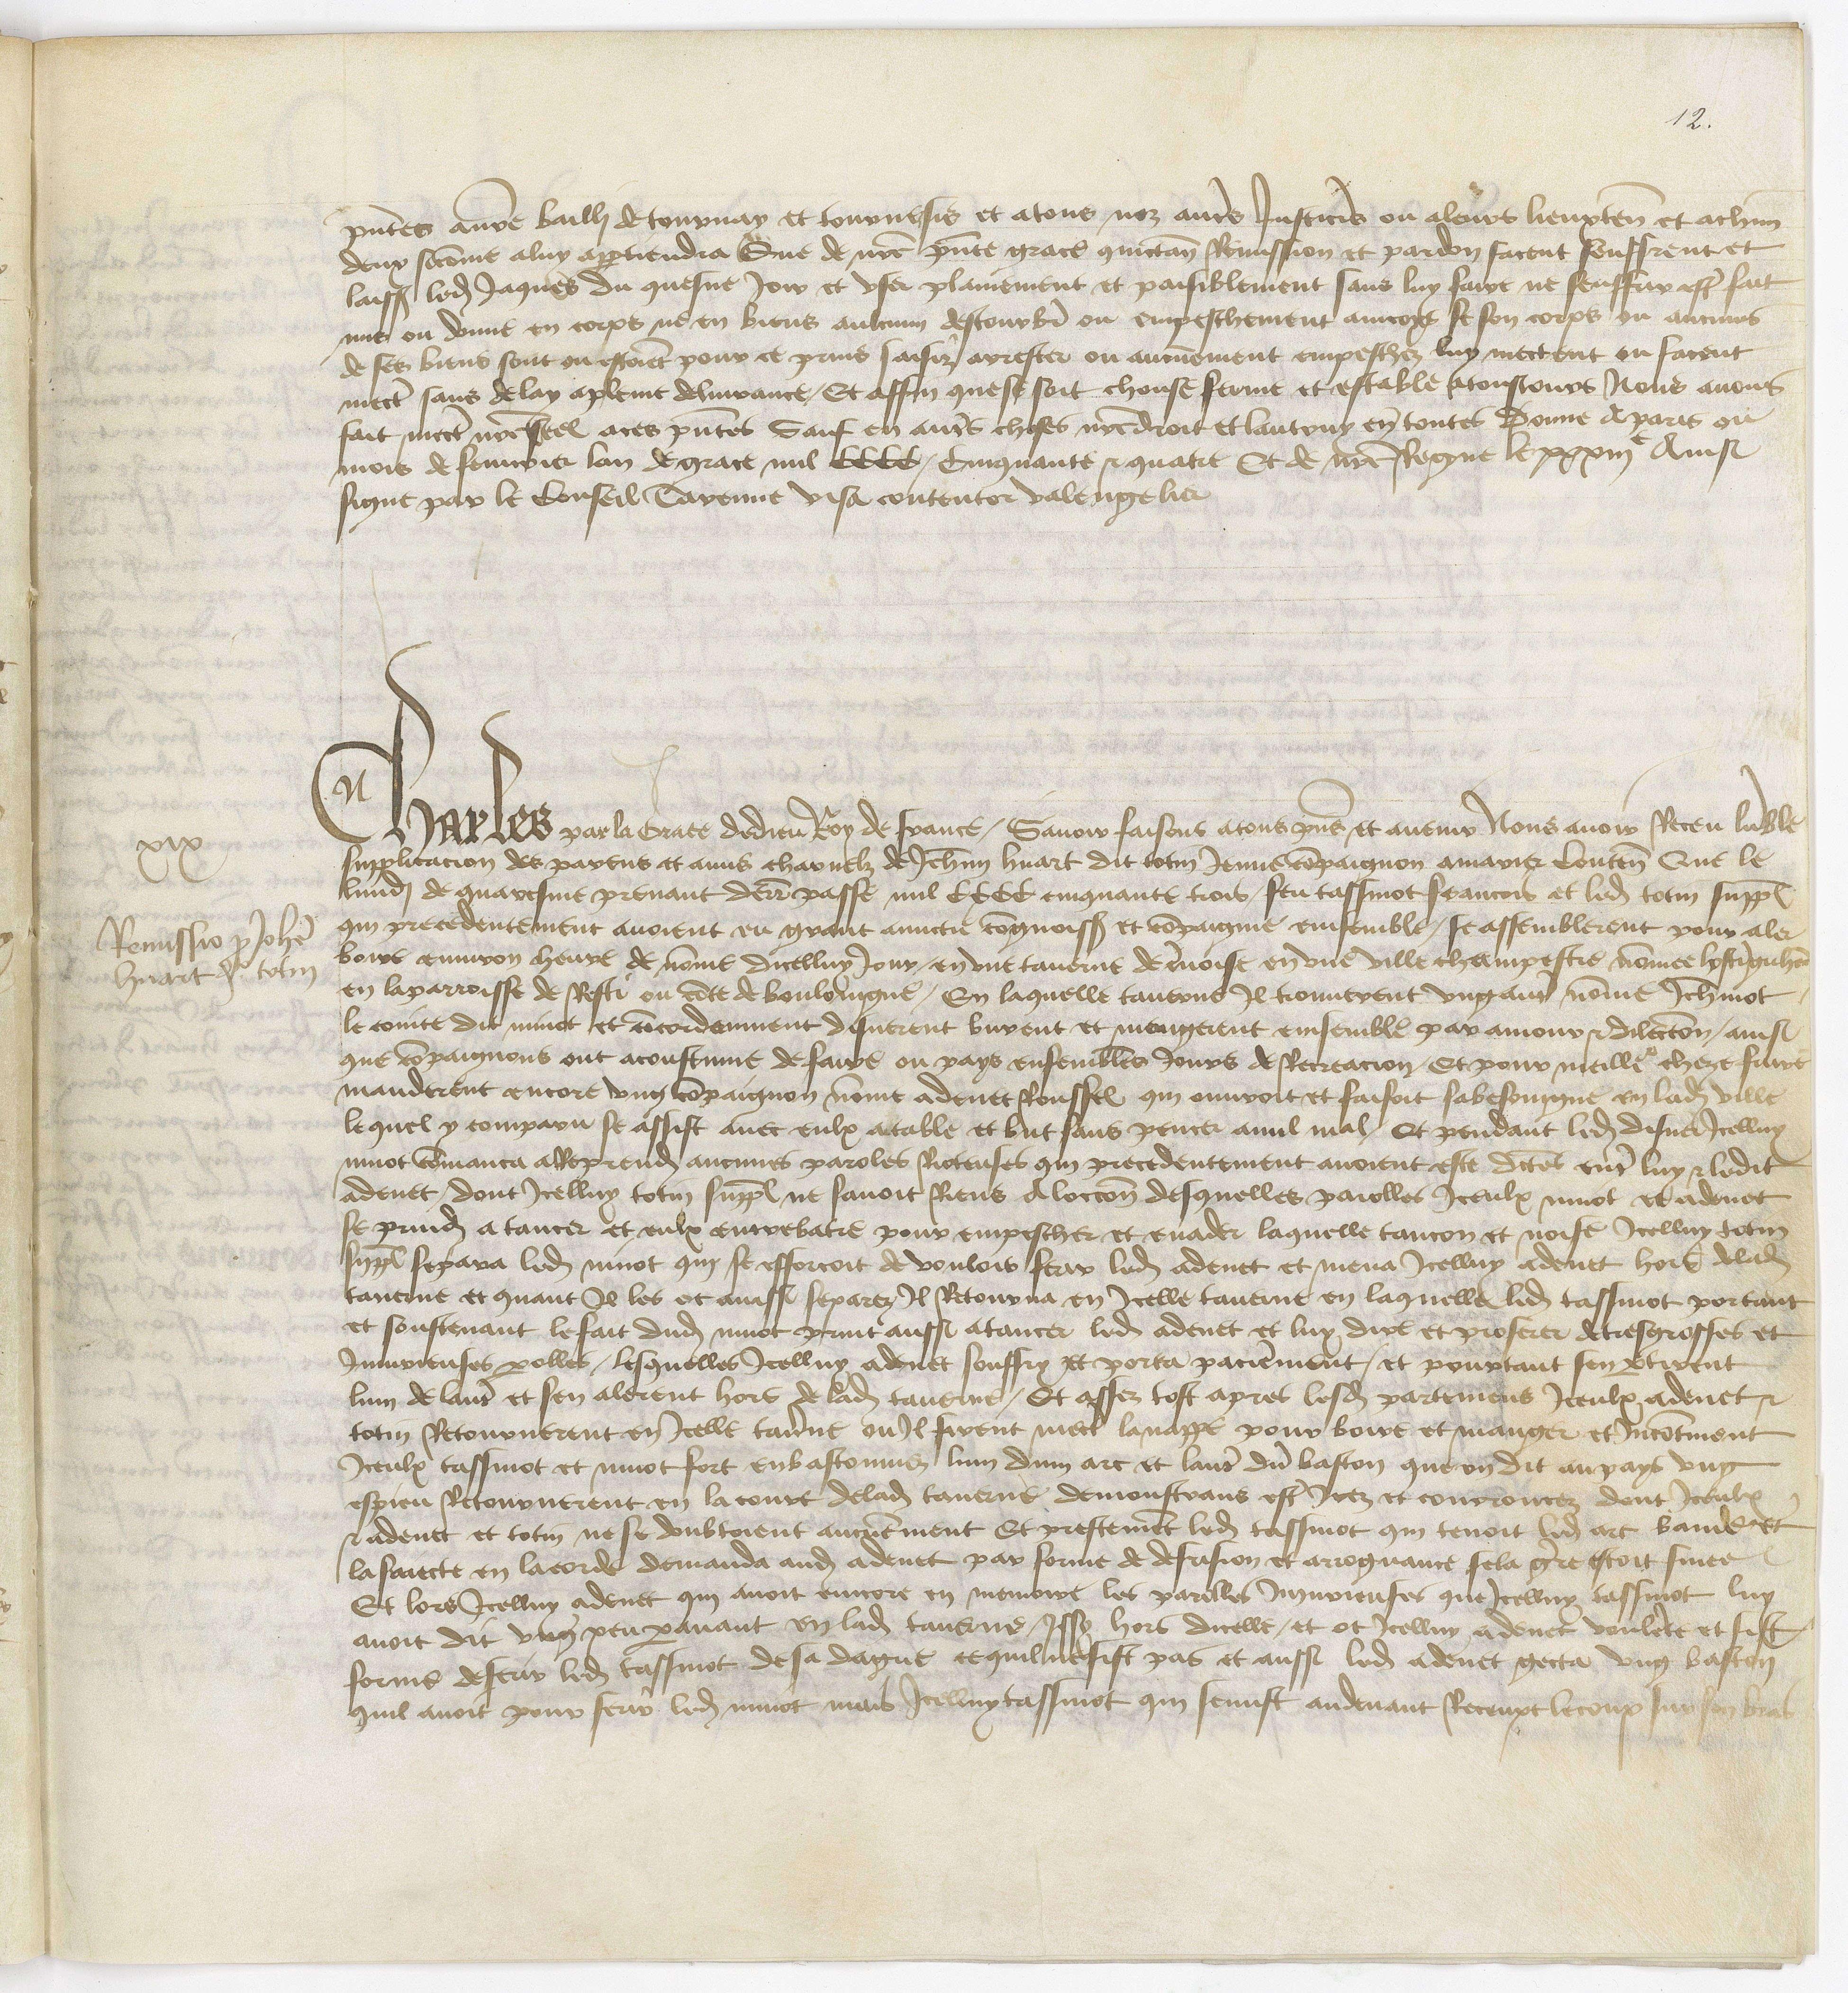 12.
pntes au bailli de tournay et tournesis et a tous noz autres Justiciers ou a leurs lieuxten et a chun
deulx si come a luy appartiendra Que de nre pnte grace quictan Remission et pardon facent seuffrent et
laiss led Jaques du quesne Joir et user plainement et paisiblement sans luy faire ne seuffrir estre fait
mis ou donne en corps ne en biens aucun destourbr ou empeschement aincois se son corps ou aucuns
de ses biens sont ou estoient pour ce prins saisiz arrestez ou aucunement empeschez luy mectent ou facent
mectre sans delay a plaine delivrance / Et affin que ce soit chouse ferme et estable a tousiours Nous avons
fait mectre nre seel a ces pntes Sauf en autres choses nre droit et lautruy en toutes Donne A paris ou
mois de fevrier lan de grace mil CCCC / Cinquante et quatre Et de nre Regne le xxxiije Ainsi
signe par le Conseil Tavenne visa contentor valengelier
Charles par la Grace de dieu Roy de france / Savoir faisons a tous pns et avenir Nous avoir Receu lumble
xix
supplicacion des parens et amis charnelz de Jehan huart dit totin Jeune compaignon a marier Conten Que le
lundi de quaresme prenant derr passe mil CCCC cinquante trois / feu tassinot francois et led totin suppl
Remissio p Johe
huart dit totin
qui precedentement avoient eu grant amictie congnoiss et compaignie ensemble / se assemblerent pour aler
boire environ heure de nonne dicelluy Jour / en une taverne en une ville champestre nommee
en la parroisse de ou conte de boulongne / En laquelle taverne Il trouverent ung autre nomme Jehannot
le conite dit minot et concordemment disnerent burent et mengerent ensemble par amour et dilection / ainsi
que compaignons ont acoustume de faire ou pays ensembles Jours de Recreacion / Et pour meilleur chere faire
manderent encore ung compaignon nomme adenet Roussel qui ouvroit et faisoit sa besongne en lad ville
lequel y comparu se assist avec eulx a table et but sans pencer a nul mal / Et pendant led disner Icelluy
minot commanca a Reprendre aucunes paroles Rioteuses qui precedentement avoient este dictes entre luy et ledit
adenet / dont Icelluy totin suppl ne savoit Riens A loccon desquelles parolles Iceulx minot et adenet
se prindrent a tancer et eulx entrebatre pour empescher et evader laquelle tancon et noise Icelluy totin
suppl sepera led minot qui se efforcoit de vouloir ferir led adenet et mena Icelluy adenet hors de lad
taverne et quant Il les ot ainssi separez Il Retourna en Icelle taverne en laquelle led tassinot portant
et soustenant le fait dud minot print aussi a tancer led adenet et luy dire et proferer de tresgrosses et
Iniurieuses polles / lesquelles Icelluy adenet souffry et porta paciemment / et pourtant sen ptirent
lun de lautre et sen alerent hors de lad taverne / Et assez tost apres lesd partemens Iceulx adenet et
totin Retournerent en Icelle taverne ou Il firent mectre la nappe pour boire et manger et Incontinent
Iceulx tassinot et minot fort enbastonnez lun dun arc et lautre dun baston que on dit au pays ung
espieu Retournerent en la court de lad taverne demonstrans estre Irez et courroucez dont Iceulx
adenet et totin ne se doubtoient aucunement Et prestement led tassinot qui tenoit led arc bande et
la saiecte en la corde demanda aud adenet par forme de derision et arrogance se la guerre estoit finee
Et lors Icelluy adenet qui avoit encore en memoire les parolles Iniurieuses que Icelluy tassinot luy
avoit dit ung peu paravant en lad taverne / Issy hors dicelle / et ot Icelluy adenet voulente et fist
forme de ferir led tassinot de sa dague ce quil ne fist pas et aussi led adenet gecta ung baston
quil avoit pour ferir led minot mais Icelluy tassinot qui se mist au devant Receupt le coup sur son bras